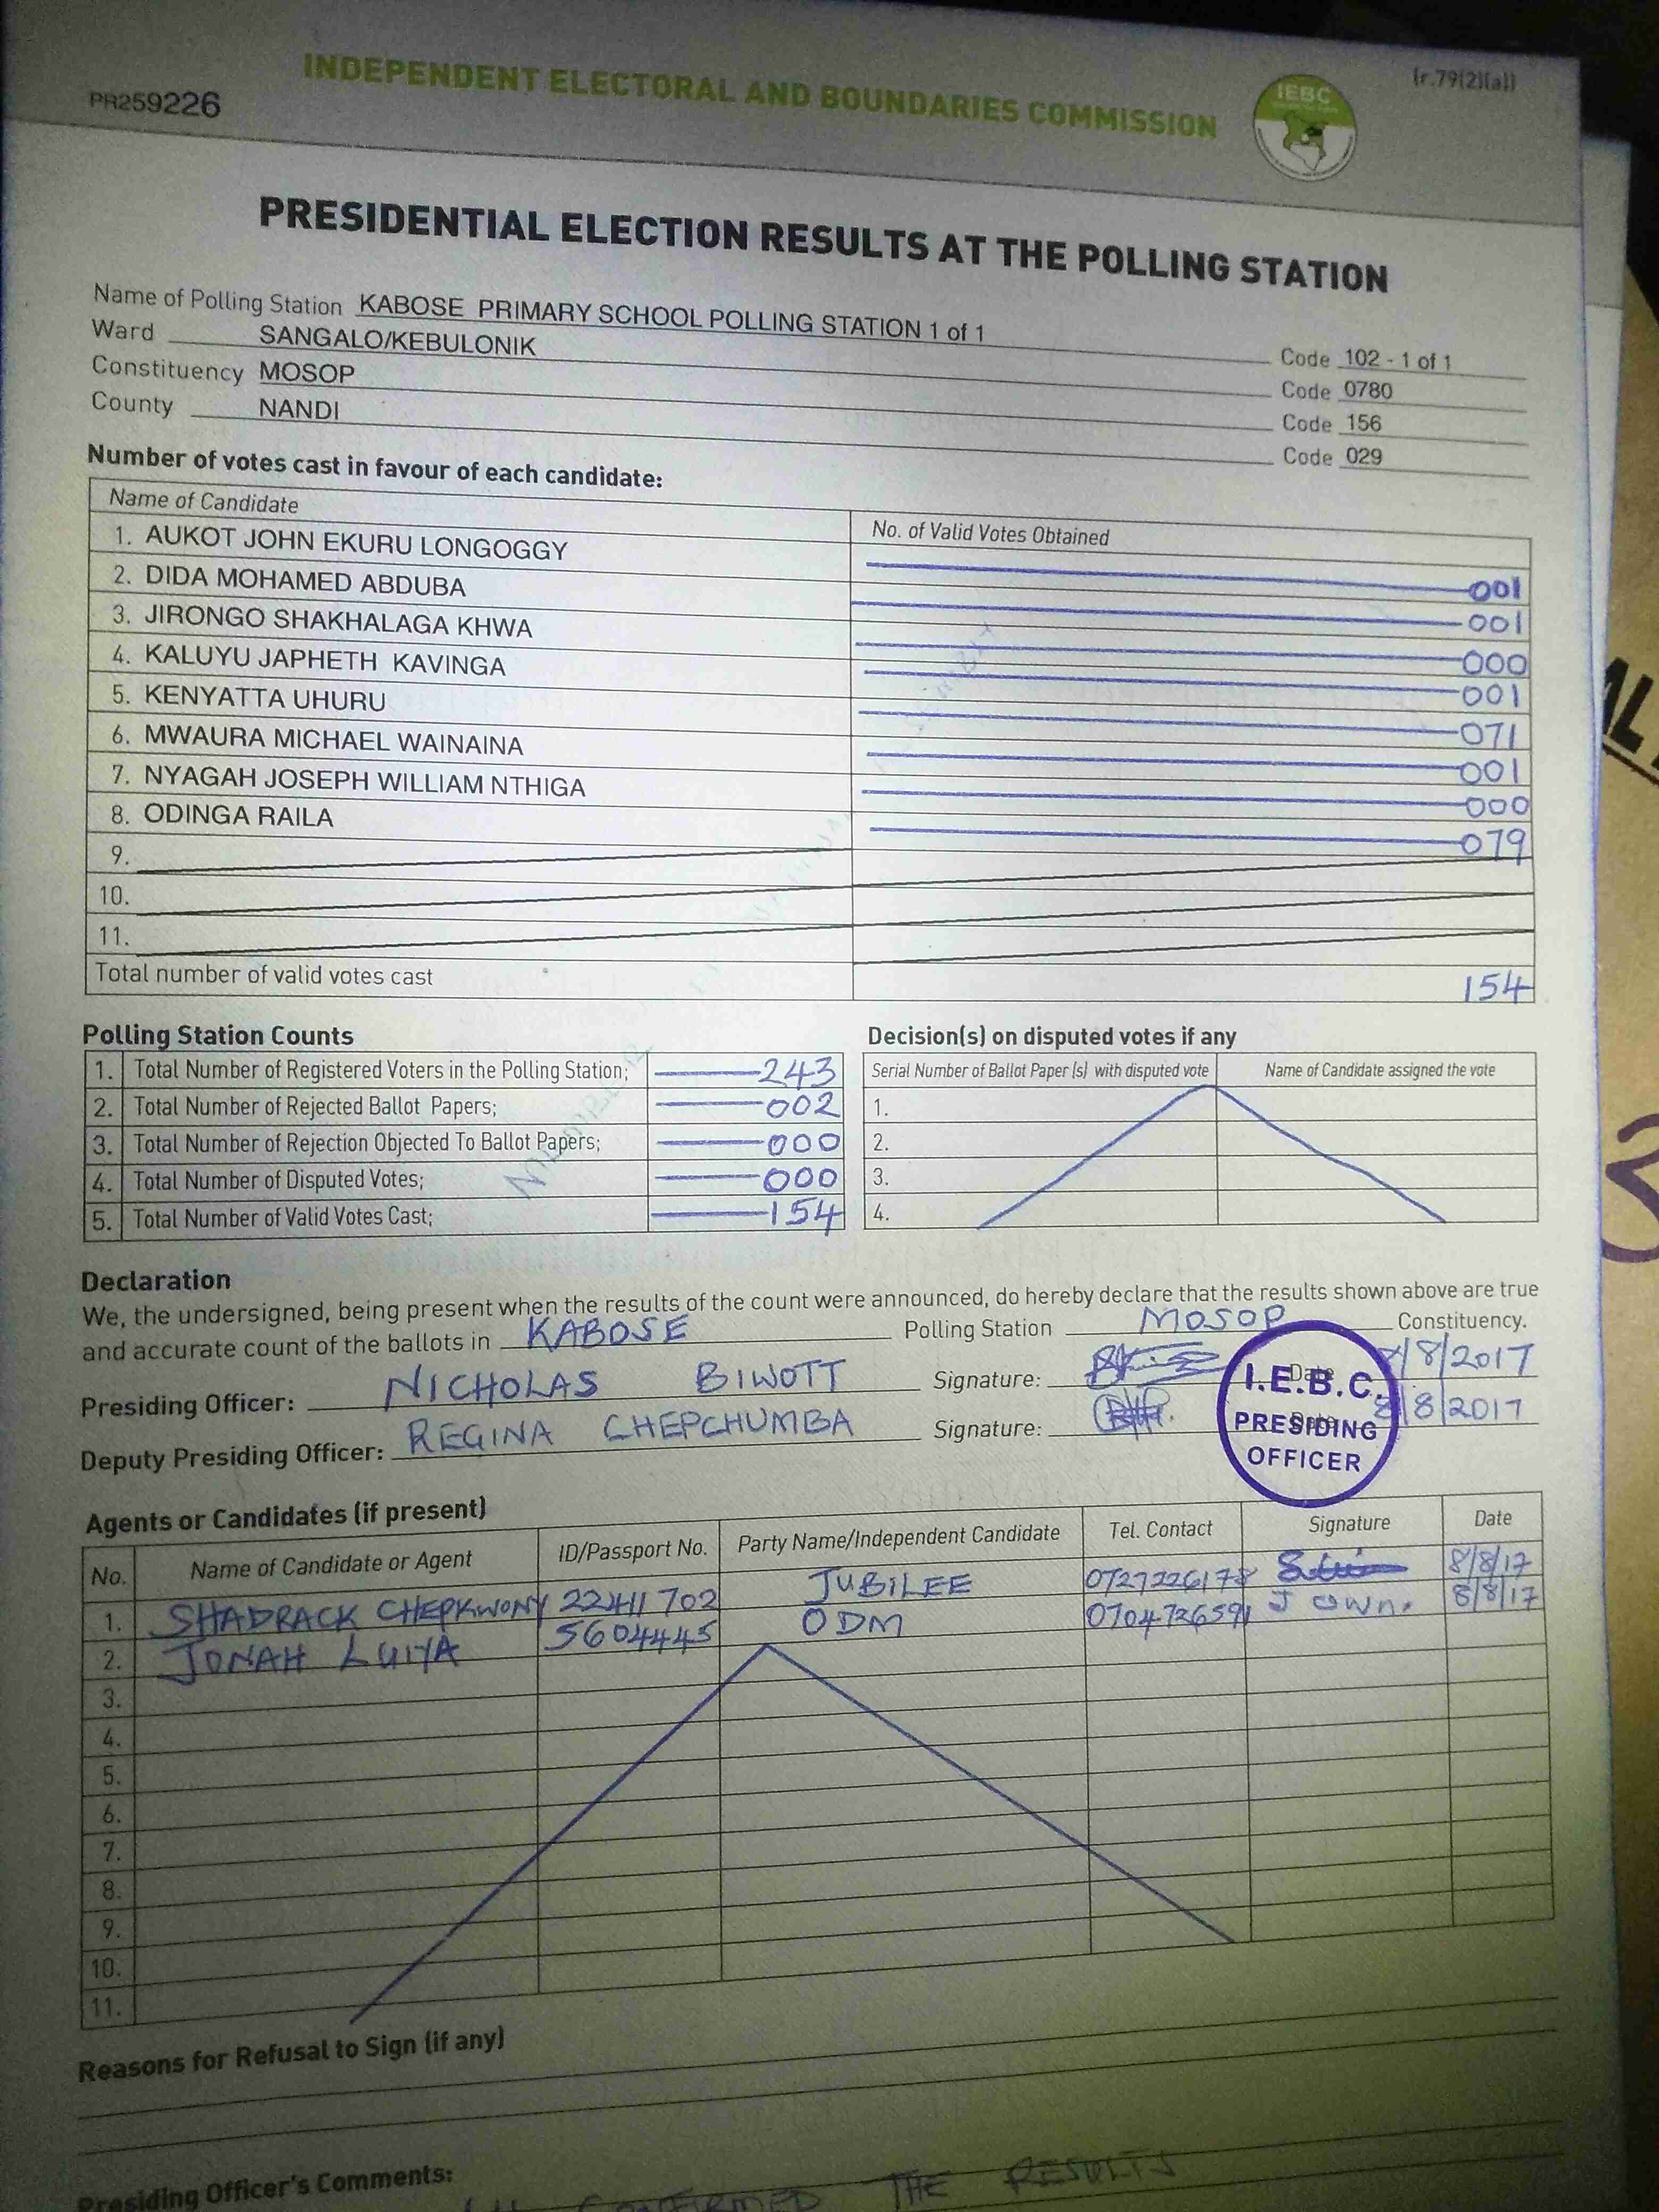 (r.79(2)(a))
PR259226
INDEPENDENT ELECTORAL AND BOUNDARIES COMMISSION
IEBC
PRESIDENTIAL ELECTION RESULTS AT THE POLLING STATION
Name of Polling Station KABOSE PRIMARY SCHOOL POLLING STATION 1 of 1 Code 102 - 1 of 1
Ward SANGALO/KEBULONIK Code 0780
Constituency MOSOP Code 156
County NANDI Code 029
Number of votes cast in favour of each candidate:
Name of Candidate No. of Valid Votes Obtained
1. AUKOT JOHN EKURU LONGOGGY 001
2. DIDA MOHAMED ABDUBA 001
3. JIRONGO SHAKHALAGA KHWA 000
4. KALUYU JAPHETH KAVINGA 001
5. KENYATTA UHURU 071
6. MWAURA MICHAEL WAINAINA 001
7. NYAGAH JOSEPH WILLIAM NTHIGA 000
8. ODINGA RAILA 079
9.
10.
11.
Total number of valid votes cast 154
Polling Station Counts
1. Total Number of Registered Voters in the Polling Station; 243
2. Total Number of Rejected Ballot Papers; 002
3. Total Number of Rejection Objected To Ballot Papers; 000
4. Total Number of Disputed Votes; 000
5. Total Number of Valid Votes Cast; 154
Decision(s) on disputed votes if any
Serial Number of Ballot Paper (s) with disputed vote Name of Candidate assigned the vote
1.
2.
3.
4.
Declaration
We, the undersigned, being present when the results of the count were announced, do hereby declare that the results shown above are true
and accurate count of the ballots in KABOSE Polling Station MOSOP Constituency.
Presiding Officer: NICHOLAS BIWOTT Signature: Date 8/8/2017
Deputy Presiding Officer: REGINA CHEPCHUMBA Signature: Date 8/8/2017
I.E.B.C.
PRESIDING
OFFICER
Agents or Candidates (if present)
No. Name of Candidate or Agent ID/Passport No. Party Name/Independent Candidate Tel. Contact Signature Date
1. SHADRACK CHEPKWONY 22411702 JUBILEE 0727226178 8/8/17
2. JONAH LUIYA 5604445 ODM 0704726591 J Own. 8/8/17
3.
4.
5.
6.
7.
8.
9.
10.
11.
Reasons for Refusal to Sign (if any)
Presiding Officer's Comments:
CONFIRMED THE RESULTS